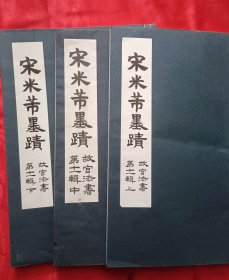 宋米芾墨蹟
故宮法書
第十一輯上
宋米芾墨蹟
故宮法書
第十一輯中
宋米芾墨蹟
故宮法書
第十一輯下